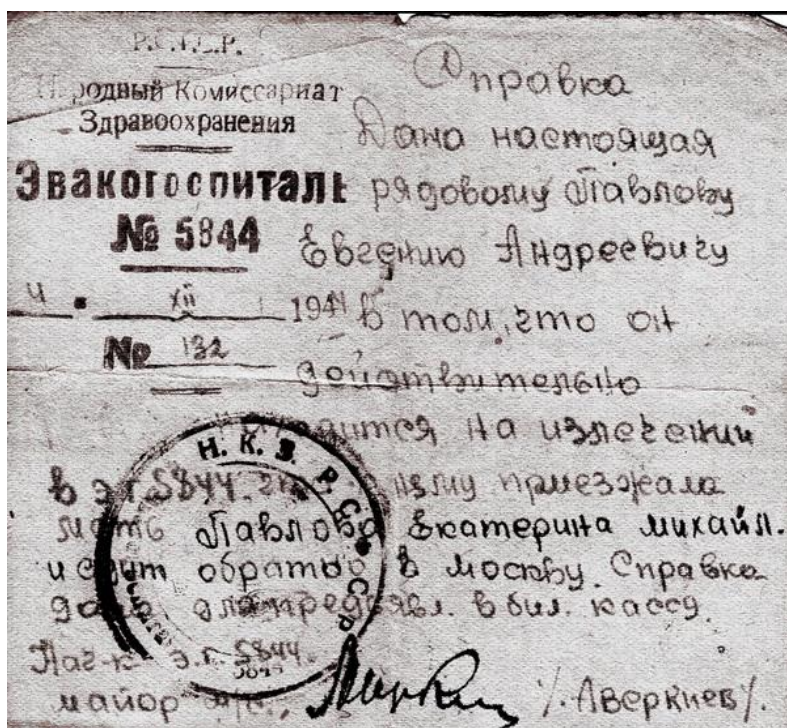 Р.С.Ф.С.Р.
Народный Комиссариат
Здравоохранения
Эвакогоспиталь
№ 5844
4 • XII 1944
№ 132
Справка
Дана настоящая
рядовому Павлову
Евгению Андреевичу
в том, что он
действительно
находится на излечении
в э.г. 5844. к нему приезжала
мать Павлова Екатерина Михайл.
и едит обратно в Москву. Справка
дана для предъявл. в бил. кассу.
Нач-к э.г. 5844.
майор м/с.
/. Аверкиев /.
Н. К. З. Р. С. Ф. С. Р.
5844